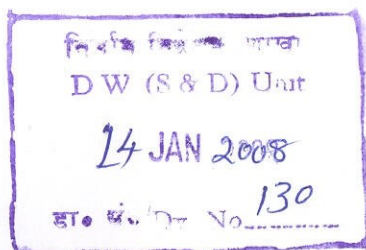 D W (S & D) Unit
14 JAN 2008
डा० सं०/Dy No. 130